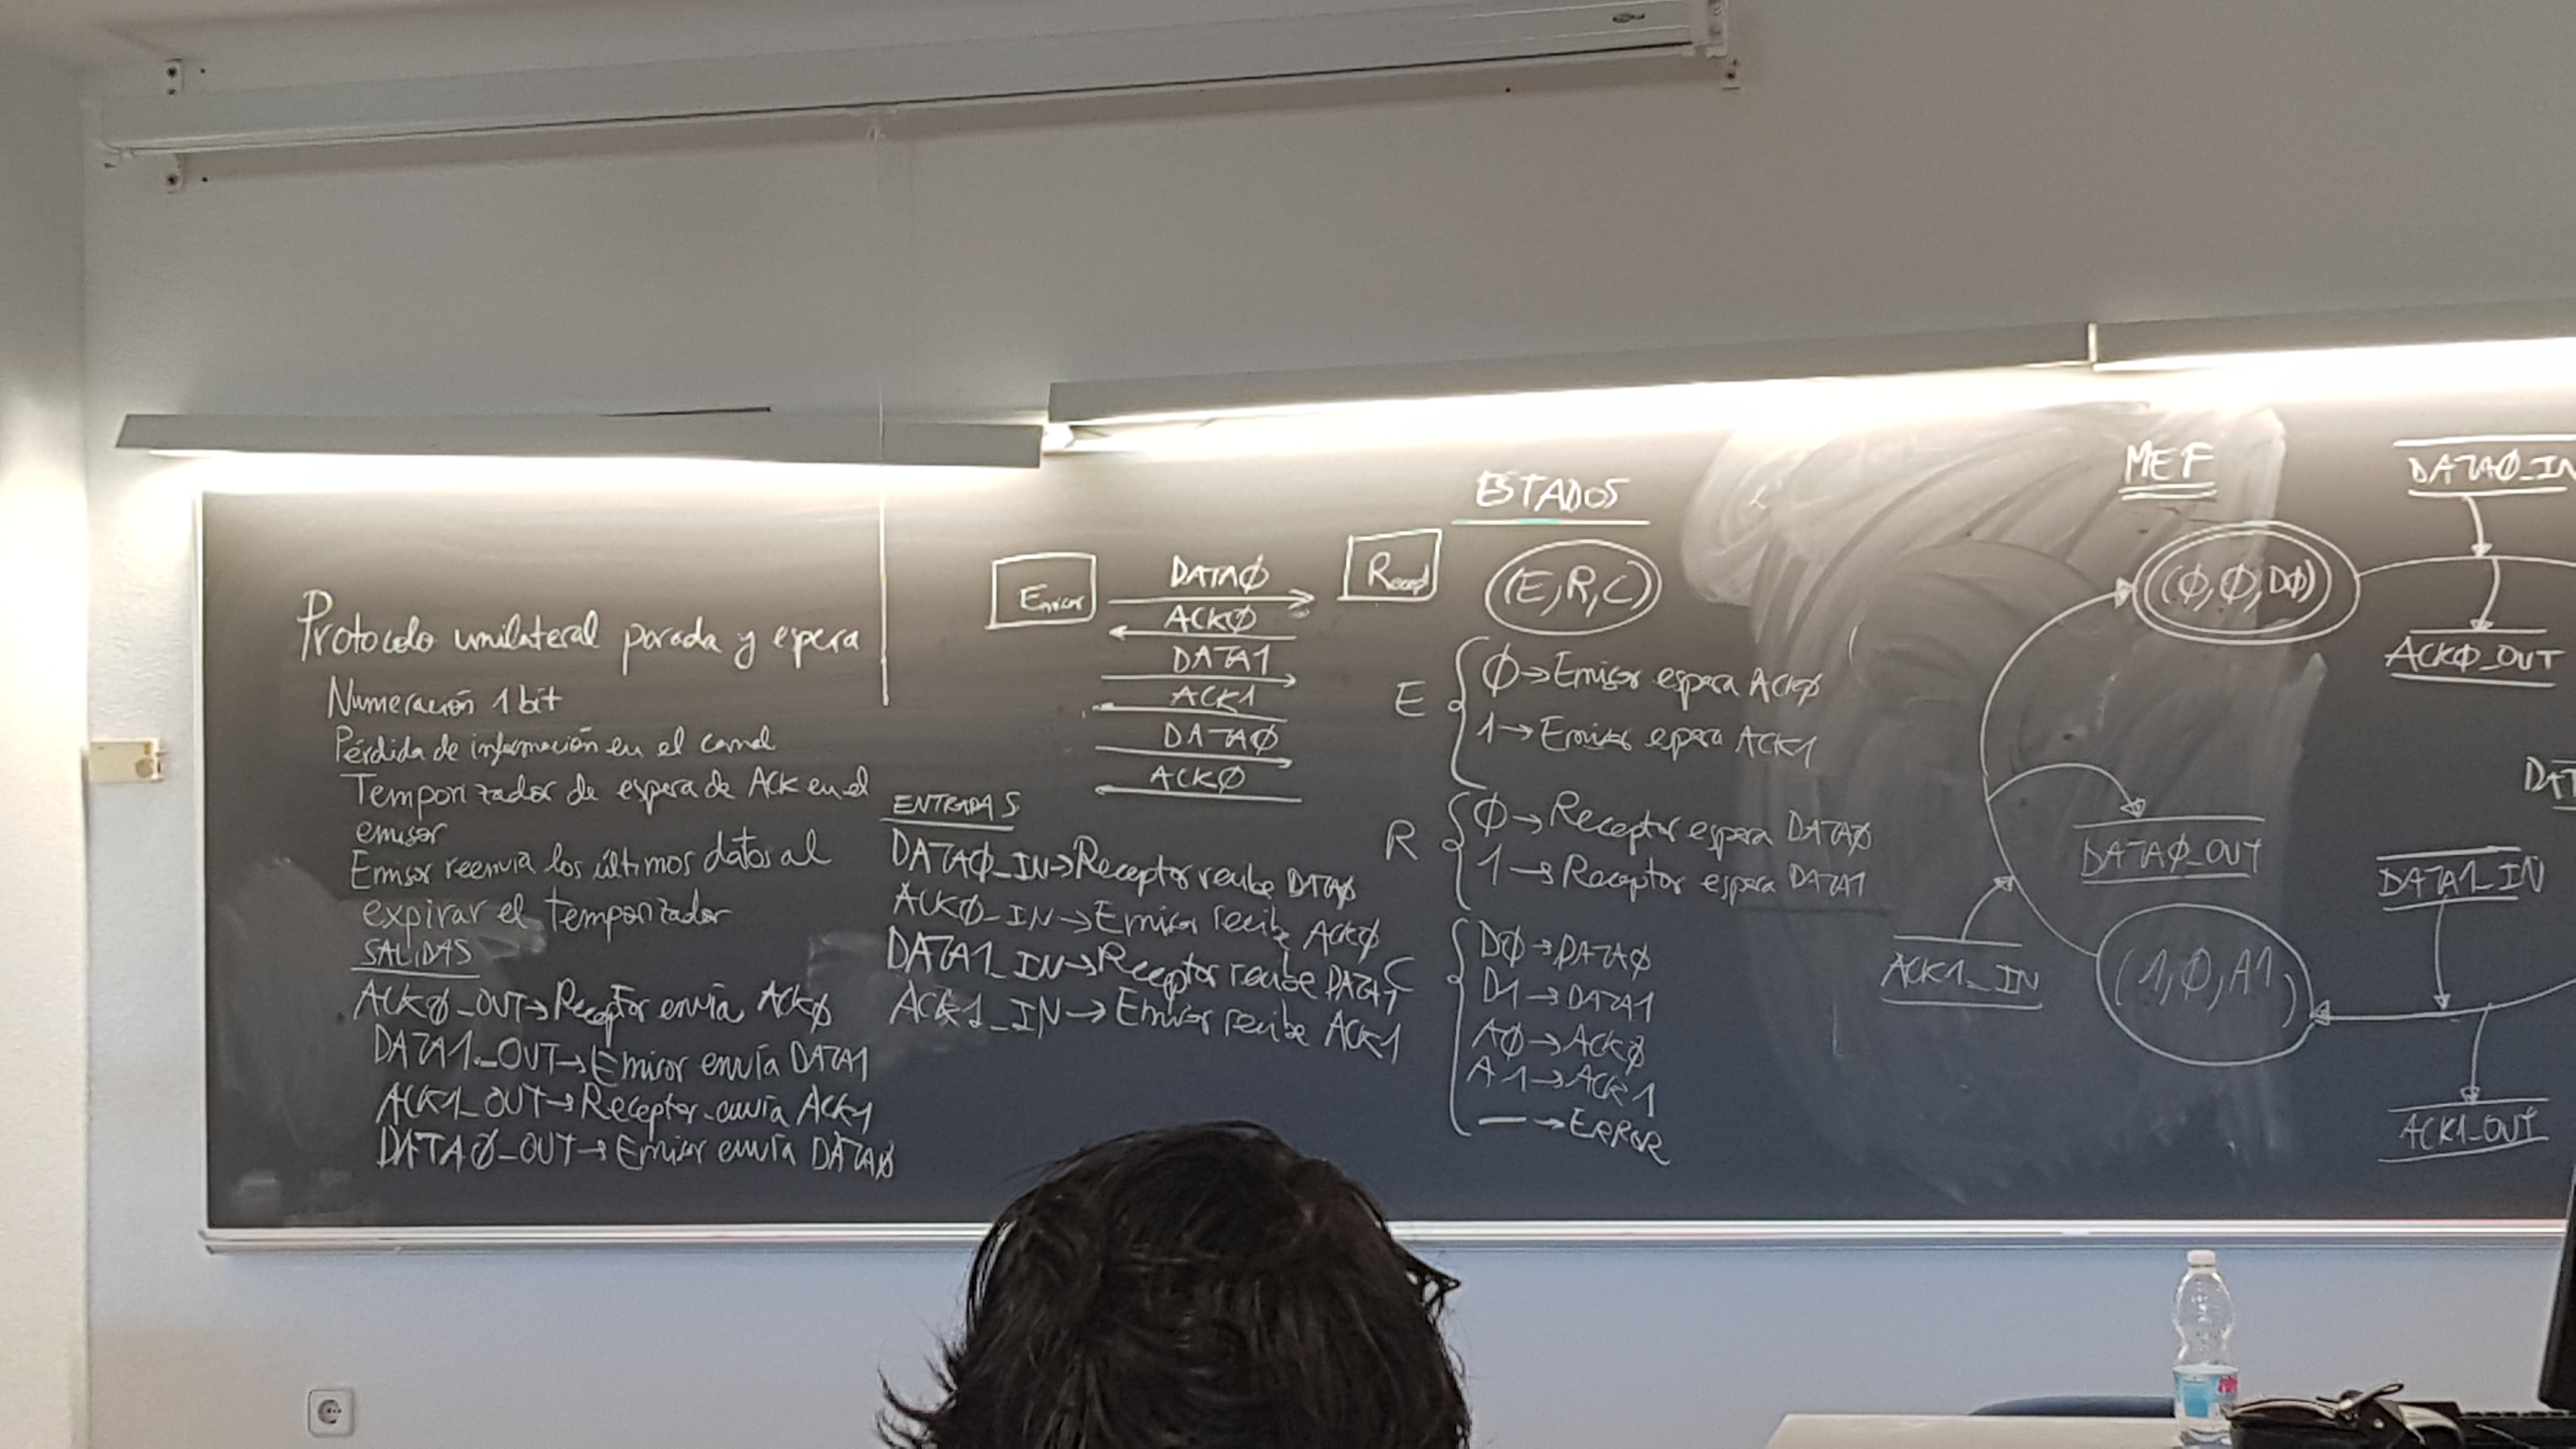 Protocolo unilateral parada y espera
Numeración 1 bit
Pérdida de información en el canal
Temporizador de espera de ACK en el
emisor
Emisor reenvia los últimos datos al
expirar el temporizador
SALIDAS
ACKØ_OUT→Receptor envía ACKØ
DATA1_OUT→Emisor envía DATA1
ACK1_OUT→Receptor envía ACK1
DATAØ_OUT→Emisor envía DATAØ
Emisor
Recep
DATAØ
ACKØ
DATA1
ACK1
DATAØ
ACKØ
ENTRADAS
DATAØ_IN→Receptor recibe DATAØ
ACKØ_IN→Emisor recibe ACKØ
DATA1_IN→Receptor recibe DATA1
ACK1_IN→Emisor recibe ACK1
ESTADOS
(E,R,C)
E
Ø→Emisor espera ACKØ
1→Emisor espera ACK1
R
Ø→Receptor espera DATAØ
1→Receptor espera DATA1
C
DØ→DATAØ
D1→DATA1
AØ→ACKØ
A1→ACK1
—→ERROR
MEF
DATAØ_IN
(Ø,Ø,DØ)
ACKØ_OUT
DATAØ_OUT
DAT
DATA1_IN
ACK1_IN
(1,Ø,A1)
ACK1_OUT